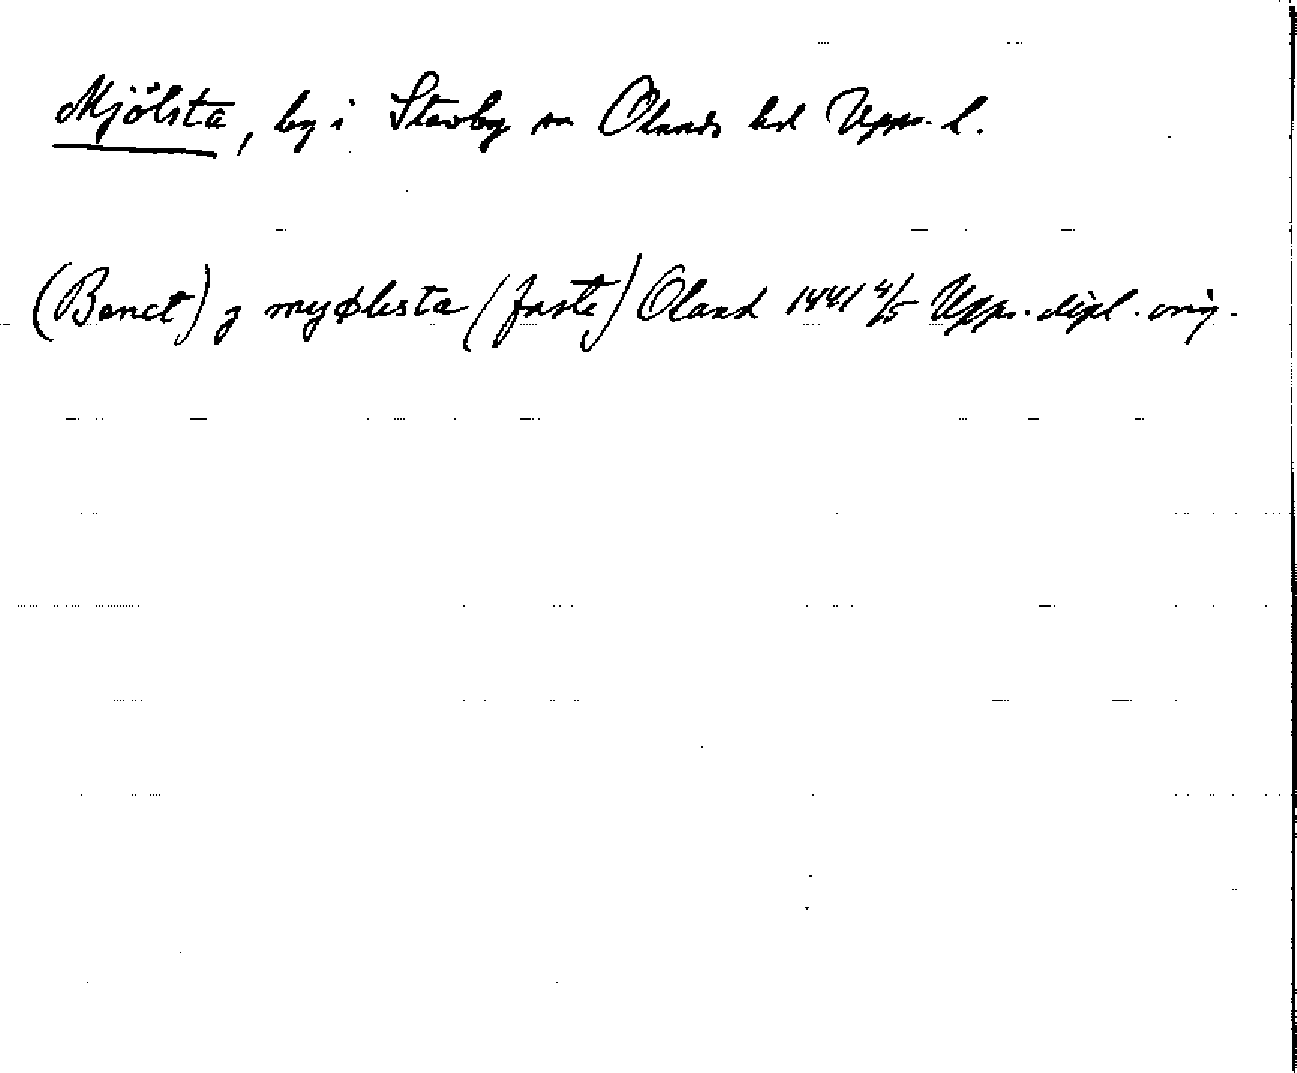 Mjölsta, by i Stavby sn Olands hd Upps. l.
(Benct) j myølesta (faste) Oland 1441 4/5 Upps. dipl. orig.